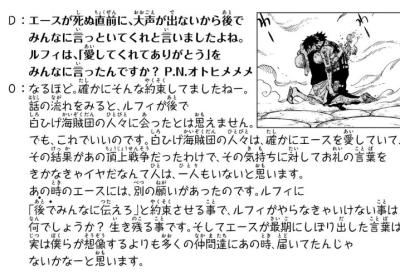 D：エースが死ぬ直前に、大声が出ないから後で
みんなに言っといてくれと言いましたよね。
ルフィは、「愛してくれてありがとう」を
みんなに言ったんですか？ P.N.オトヒメメメ
O：なるほど。確かにそんな約束してましたねー。
話の流れをみると、ルフィが後で
白ひげ海賊団の人々に会ったとは思えません。
でも、これでいいのです。白ひげ海賊団の人々は、確かにエースを愛していて、
その結果があの頂上戦争だったわけで、その気持ちに対してお礼の言葉を
きかなきゃイヤだなんて人は、一人もいないと思います。
あの時のエースには、別の願いがあったのです。ルフィに
「後でみんなに伝えろ」と約束させる事で、ルフィがやらなきゃいけない事は
何でしょうか？ 生き残る事です。そしてエースが最期にしぼり出した言葉は
実は僕らが想像するよりも多くの仲間達にあの時、届いてたんじゃ
ないかなーと思います。